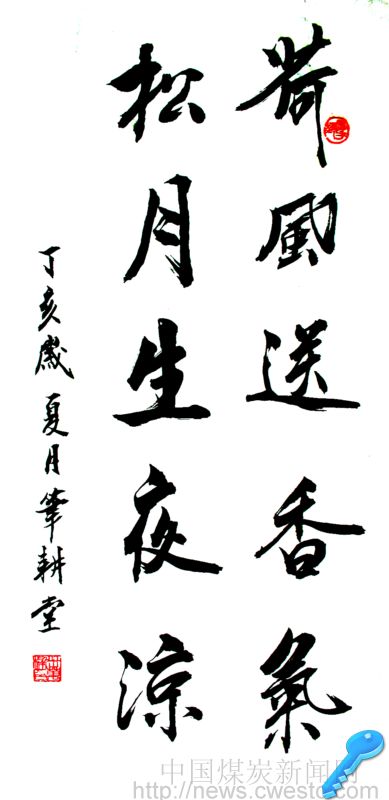 荷風送香氣
松月生夜涼
丁亥歲夏月筆耕堂
中国煤炭新闻网
http://news.cwestc.com